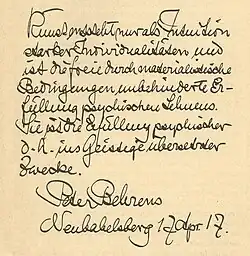 Kunst entsteht nur als Intuition
starker Individualitäten und
ist die freie durch materialistische
Bedingungen unbehinderte Er-
füllung psychischen Sehnens.
Sie ist die Erfüllung psychischer
d.h. ins Geistige übersetzter
Zwecke.
Peter Behrens
Neubabelsberg 17 Apr. 17.